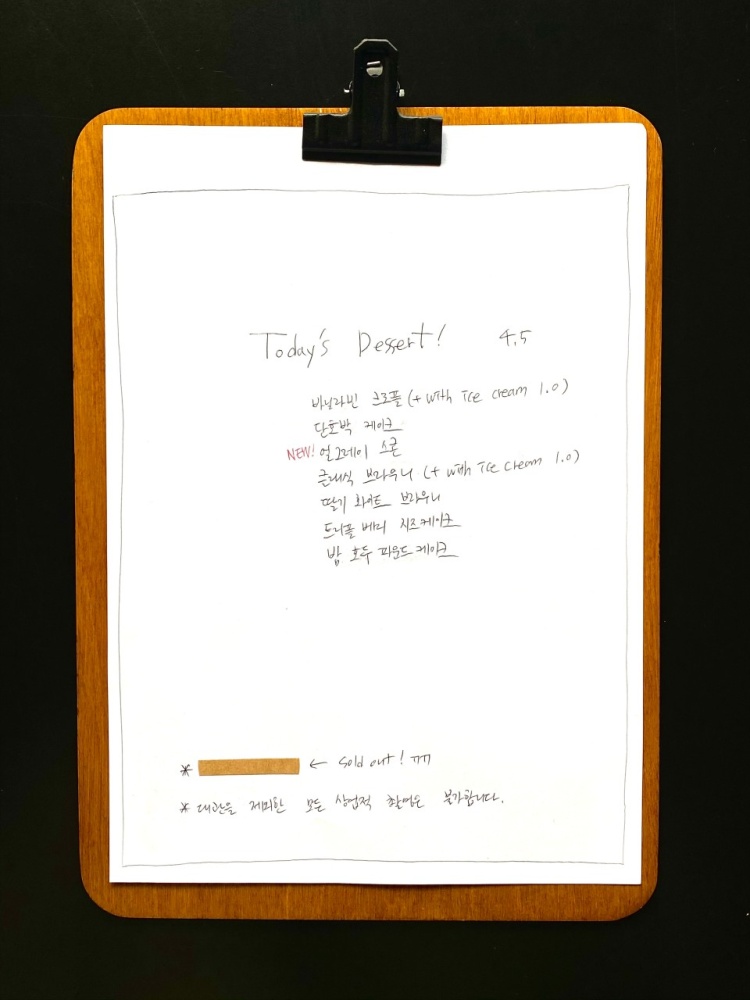 Today's Dessert! 4.5
바닐라빈 크로플 (+ with Ice cream 1.0)
단호박 케이크
NEW! 얼그레이 스콘
클래식 브라우니 (+ with Ice cream 1.0)
딸기 화이트 브라우니
트리플 베리 치즈케이크
밤 호두 파운드케이크
* ← Sold out! ㅠㅠ
* 대관을 제외한 모든 상업적 촬영은 불가합니다.